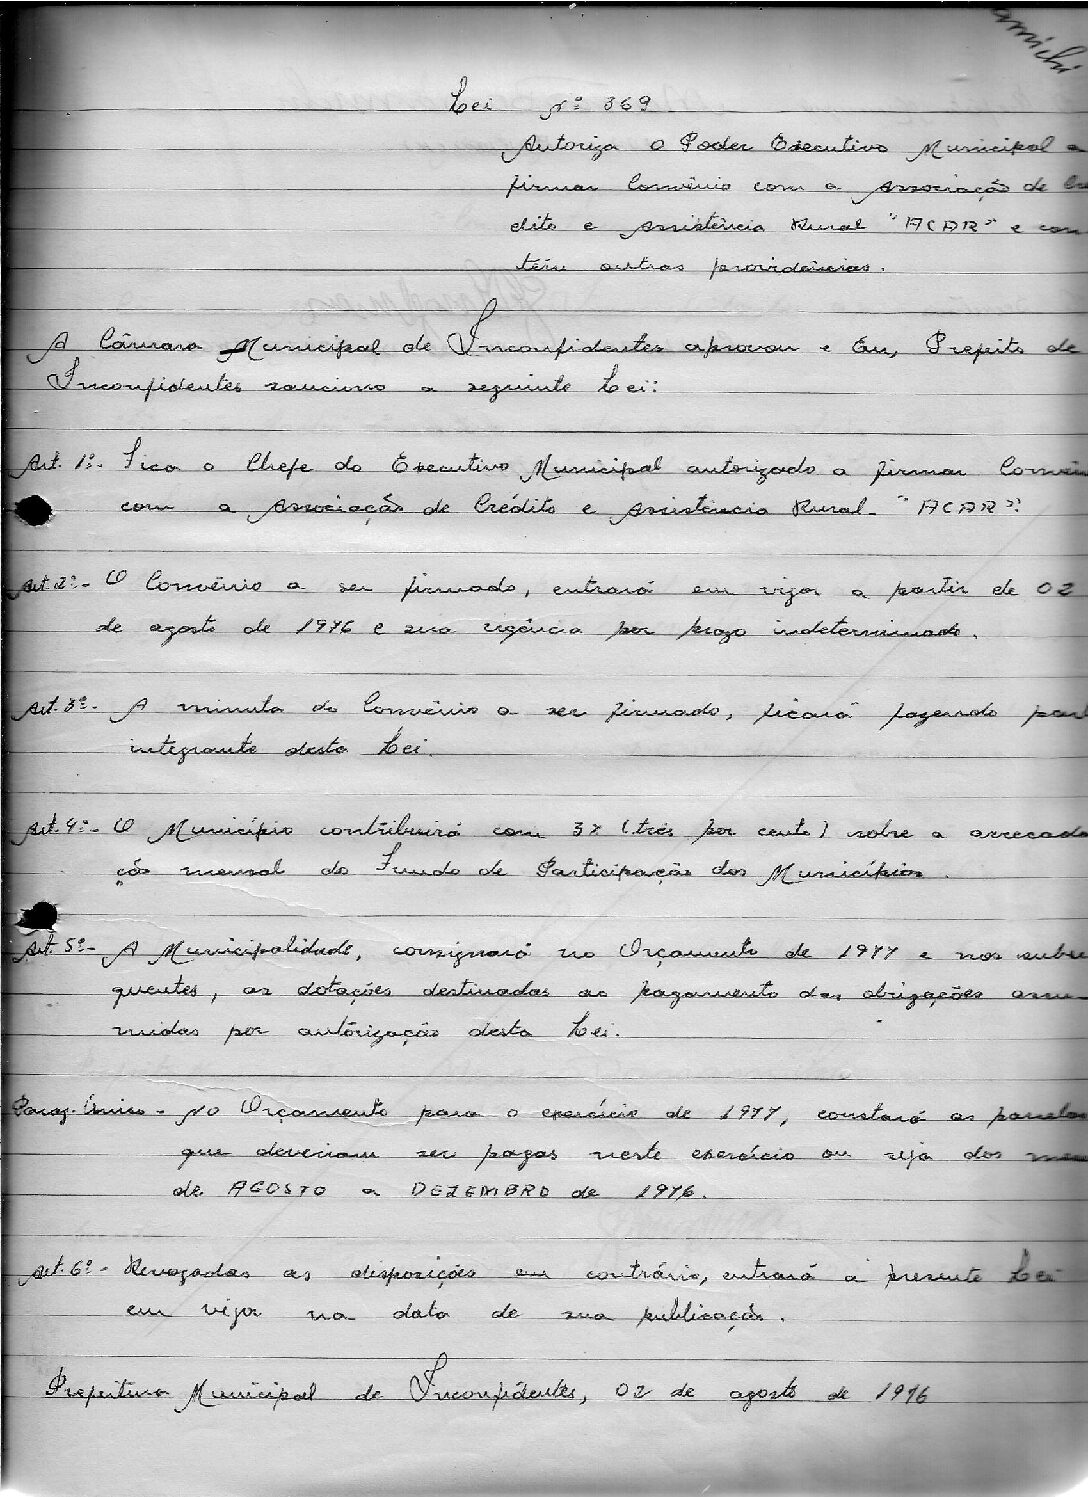 Lei Nº 369
Autoriza o Poder Executivo Municipal a
firmar Convênio com a Associação de Cre
dito e Assistência Rural "ACAR" e con
tém outras providências.
A Câmara Municipal de Inconfidentes aprovou e Eu, Prefeito de
Inconfidentes sanciono a seguinte Lei:
Art. 1º- Fica o Chefe do Executivo Municipal autorizado a firmar Convênio
com a Associação de Crédito e Assistência Rural- "ACAR".
Art 2º- O Convênio a ser firmado, entrará em vigor a partir de 02
de agosto de 1976 e sua vigência por prazo indeterminado.
Art. 3º- A minuta do Convênio a ser firmado, ficará fazendo part
integrante desta Lei.
Art. 4º- O Município contribuirá com 3% (três por cento) sobre a arrecada
ção mensal do Fundo de Participação dos Municípios.
Art. 5º- A Municipalidade, consignará no Orçamento de 1977 e nos subse
quentes, as dotações destinadas ao pagamento das obrigações assu-
midas por autorização desta Lei.
Parag. Único- No Orçamento para o exercício de 1977, constará as parcelas
que deveriam ser pagas neste exercício ou seja dos mes
de AGOSTO a DEZEMBRO de 1976.
Art. 6º- Revogadas as disposições em contrário, entrará a presente Lei
em vigor na data de sua publicação.
Prefeitura Municipal de Inconfidentes, 02 de agosto de 1976